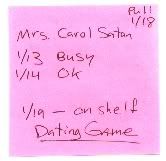 Pull
1/18
Mrs. Carol Satan
1/13 Busy
1/14 OK
1/19 - on shelf
Dating Game